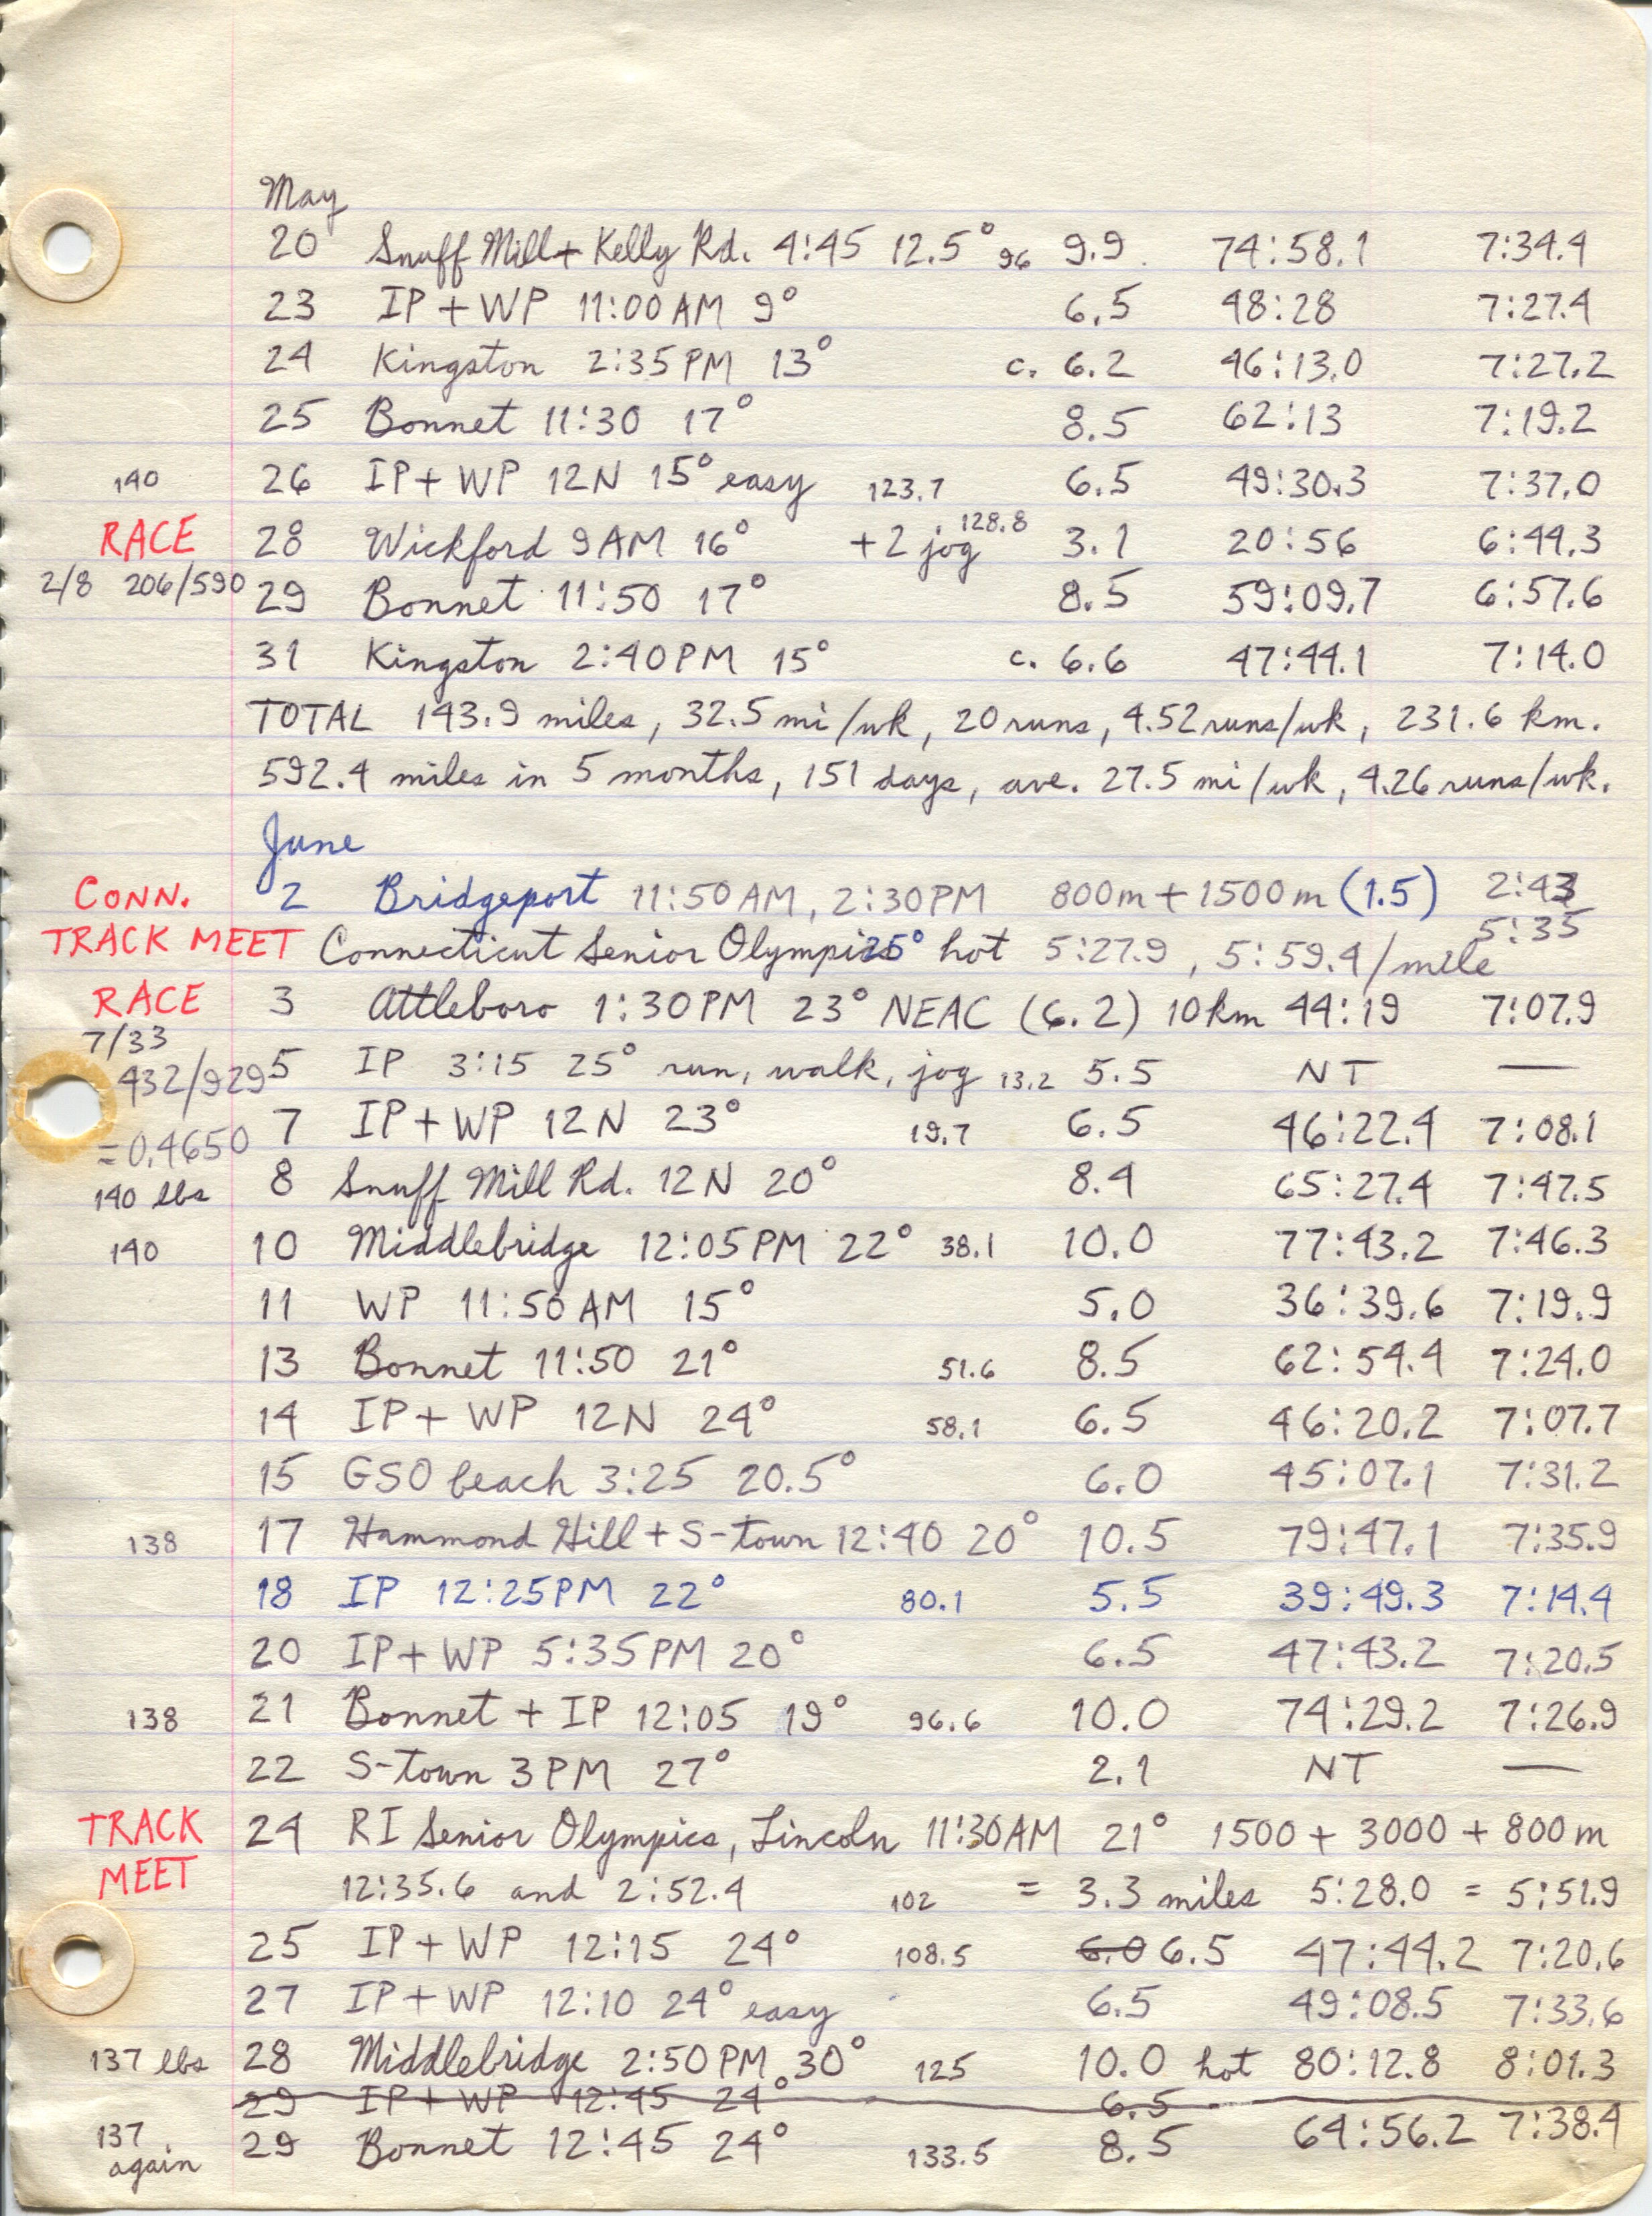 May
20 Snuff Mill + Kelly Rd. 4:45 12.5° 96 9.9 74:58.1 7:34.4
23 IP + WP 11:00 AM 9° 6.5 48:28 7:27.4
24 Kingston 2:35 PM 13° c. 6.2 46:13.0 7:27.2
25 Bonnet 11:30 17° 8.5 62:13 7:19.2
140 26 IP + WP 12N 15° easy 123.7 6.5 49:30.3 7:37.0
RACE 28 Wickford 9 AM 16° +2 jog 128.8 3.1 20:56 6:44.3
2/8 206/590 29 Bonnet 11:50 17° 8.5 59:09.7 6:57.6
31 Kingston 2:40 PM 15° c. 6.6 47:44.1 7:14.0
TOTAL 143.9 miles, 32.5 mi/wk, 20 runs, 4.52 runs/wk, 231.6 km.
592.4 miles in 5 months, 151 days, ave. 27.5 mi/wk, 4.26 runs/wk.
June
CONN. 2 Bridgeport 11:50 AM, 2:30 PM 800m + 1500m (1.5) 2:43 5:35
TRACK MEET Connecticut Senior Olympics 25° hot 5:27.9, 5:59.4/mile
RACE 3 Attleboro 1:30 PM 23° NEAC (6.2) 10 km 44:19 7:07.9
7/33
432/929 5 IP 3:15 25° run, walk, jog 13.2 5.5 NT —
=0.4650 7 IP + WP 12N 23° 19.7 6.5 46:22.4 7:08.1
140 lbs 8 Snuff Mill Rd. 12N 20° 8.4 65:27.4 7:47.5
140 10 Middlebridge 12:05 PM 22° 38.1 10.0 77:43.2 7:46.3
11 WP 11:50 AM 15° 5.0 36:39.6 7:19.9
13 Bonnet 11:50 21° 51.6 8.5 62:54.4 7:24.0
14 IP + WP 12N 24° 58.1 6.5 46:20.2 7:07.7
15 GSO beach 3:25 20.5° 6.0 45:07.1 7:31.2
138 17 Hammond Hill + S-town 12:40 20° 10.5 79:47.1 7:35.9
18 IP 12:25 PM 22° 80.1 5.5 39:49.3 7:14.4
20 IP + WP 5:35 PM 20° 6.5 47:43.2 7:20.5
138 21 Bonnet + IP 12:05 19° 96.6 10.0 74:29.2 7:26.9
22 S-town 3 PM 27° 2.1 NT —
TRACK 24 RI Senior Olympics, Lincoln 11:30 AM 21° 1500 + 3000 + 800 m
MEET 12:35.6 and 2:52.4 102 = 3.3 miles 5:28.0 = 5:51.9
25 IP + WP 12:15 24° 108.5 6.0 6.5 47:44.2 7:20.6
27 IP + WP 12:10 24° easy 6.5 49:08.5 7:33.6
137 lbs 28 Middlebridge 2:50 PM 30° 125 10.0 hot 80:12.8 8:01.3
29 IP + WP 12:45 24° 6.5
137 again 29 Bonnet 12:45 24° 133.5 8.5 64:56.2 7:38.4